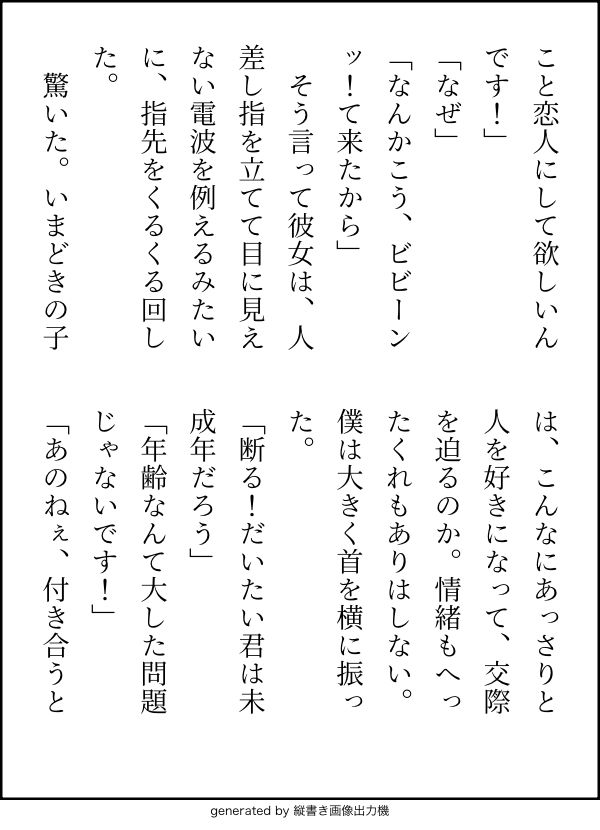 こと恋人にして欲しいん
です！」
「なぜ」
「なんかこう、ビビーン
ッ！て来たから」
　そう言って彼女は、人
差し指を立てて目に見え
ない電波を例えるみたい
に、指先をくるくる回し
た。
　驚いた。いまどきの子
は、こんなにあっさりと
人を好きになって、交際
を迫るのか。情緒もへっ
たくれもありはしない。
僕は大きく首を横に振っ
た。
「断る！だいたい君は未
成年だろう」
「年齢なんて大した問題
じゃないです！」
「あのねぇ、付き合うと
generated by 縦書き画像出力機